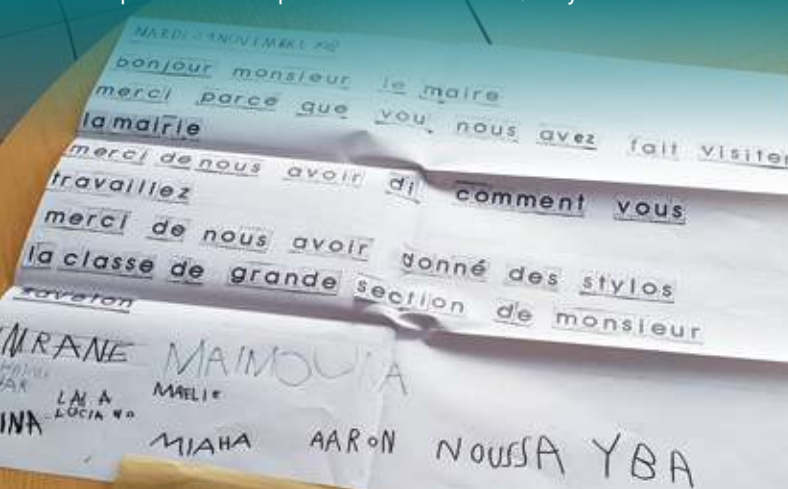 MARDI 29 NOVEMBRE
bonjour monsieur le maire
merci parce que vou nous avez fait visiter
la mairie
merci de nous avoir di comment vous
travaillez
merci de nous avoir donné des stylos
la classe de grande section de monsieur
MAIMOUNA
MAELIE
LUCIANO
MIAHA AARON NOUSSA YBA